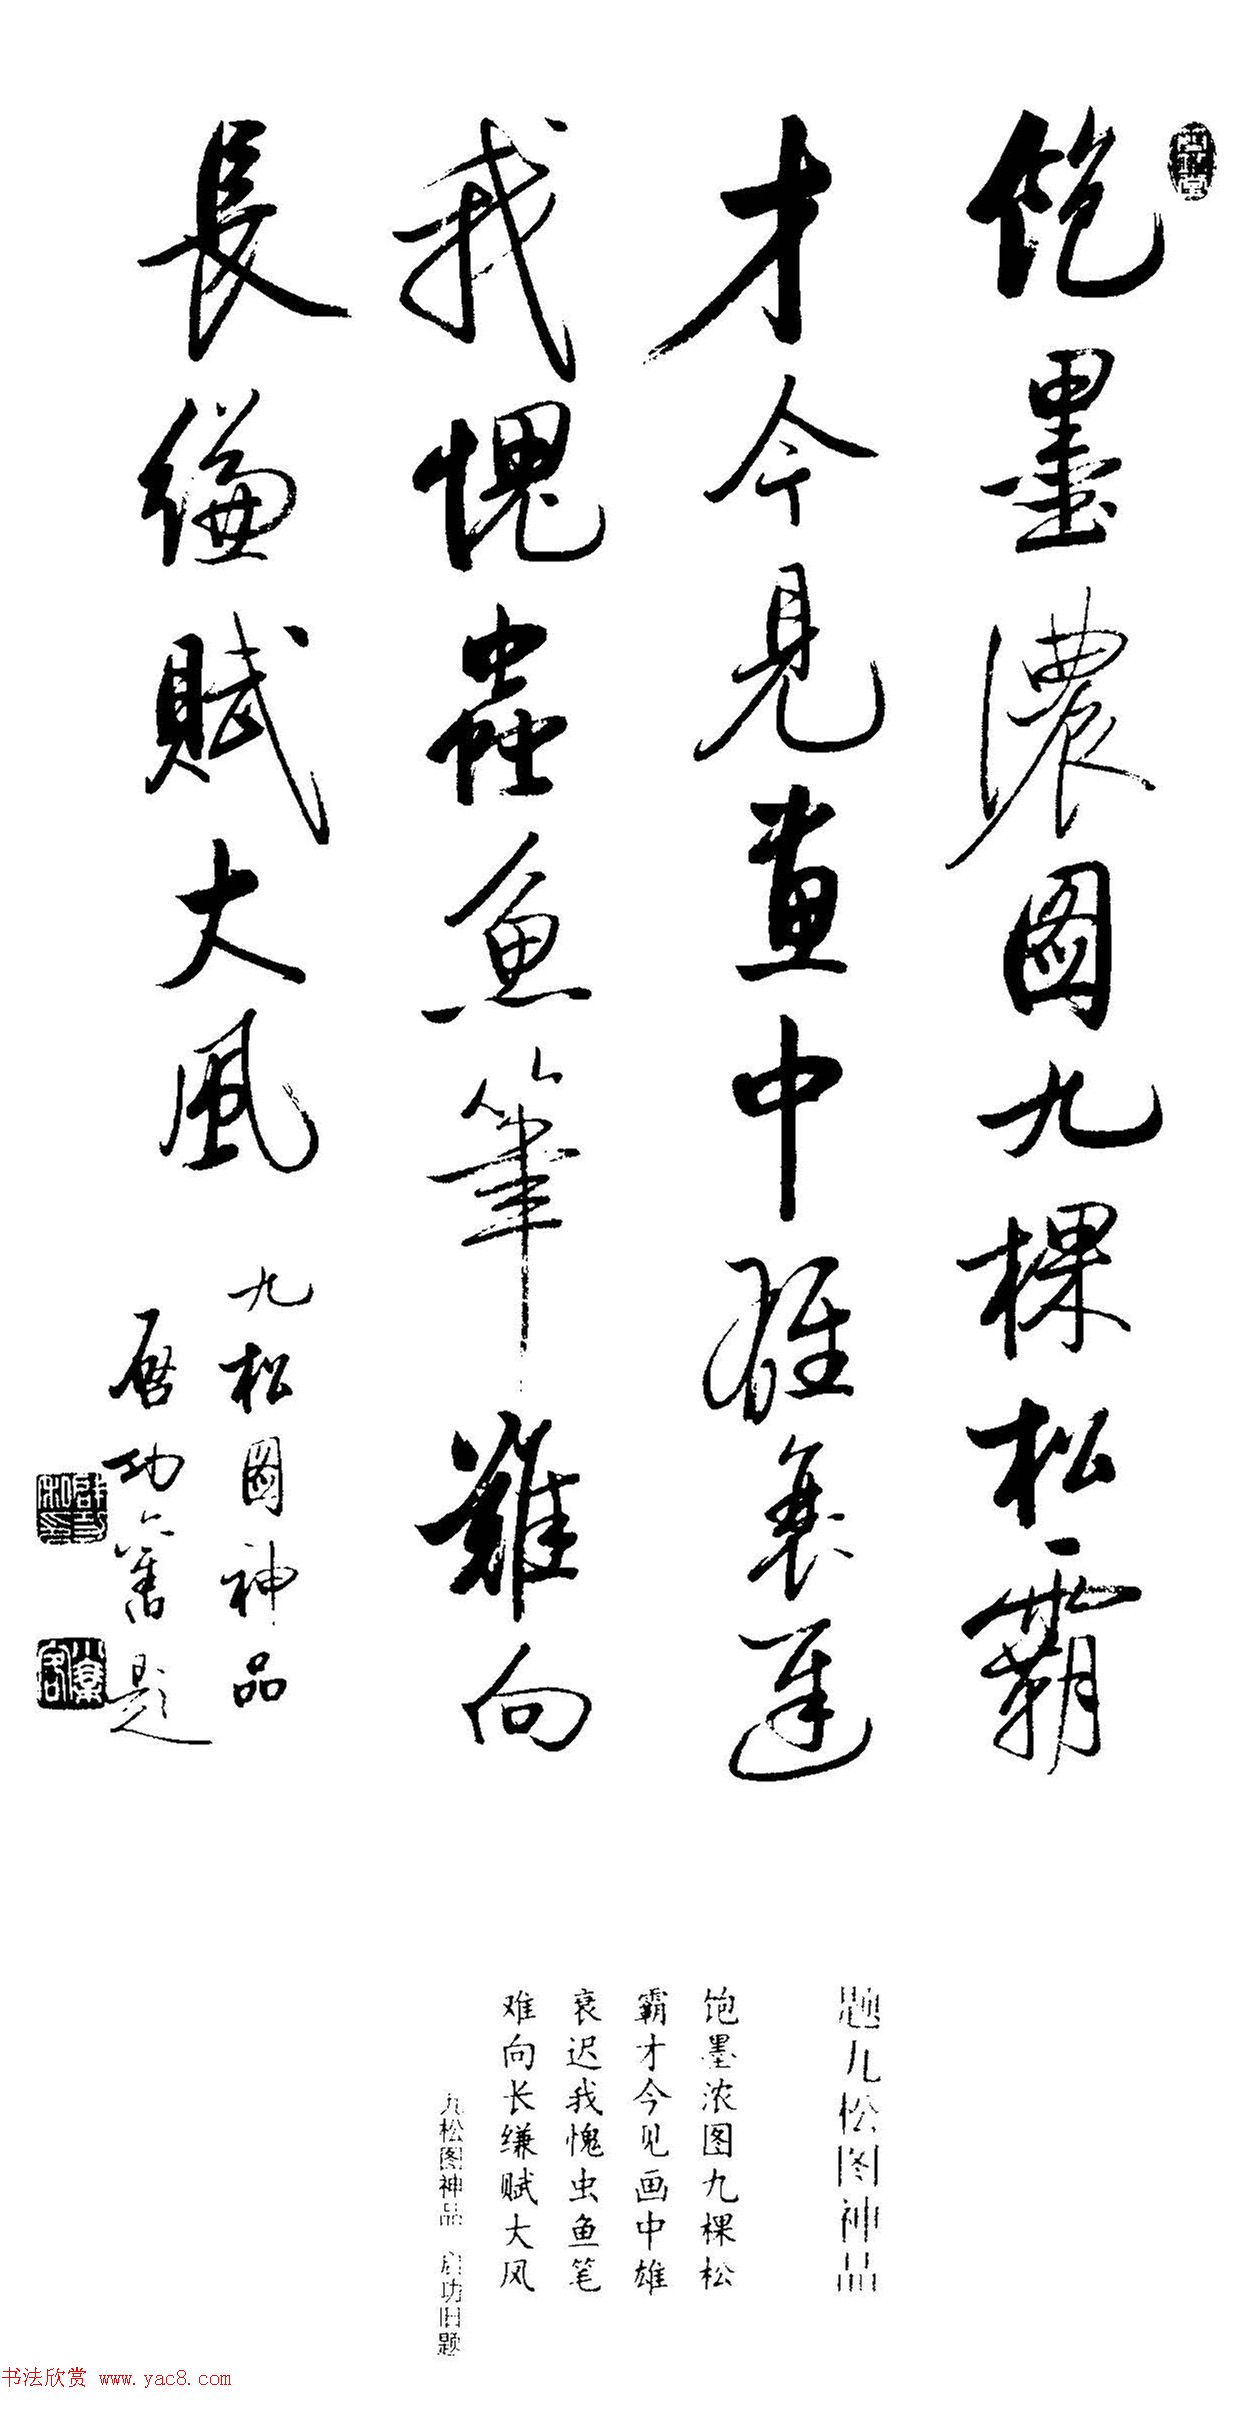 飽墨濃图九棵松霸
才今見画中雄衰遲
我愧蟲魚筆難向
長縑賦大風
九松图神品
启功舊題
题九松图神品
饱墨浓图九棵松
霸才今见画中雄
衰迟我愧虫鱼笔
难向长缣赋大风
九松图神品 启功旧题
书法欣赏 www.yac8.com